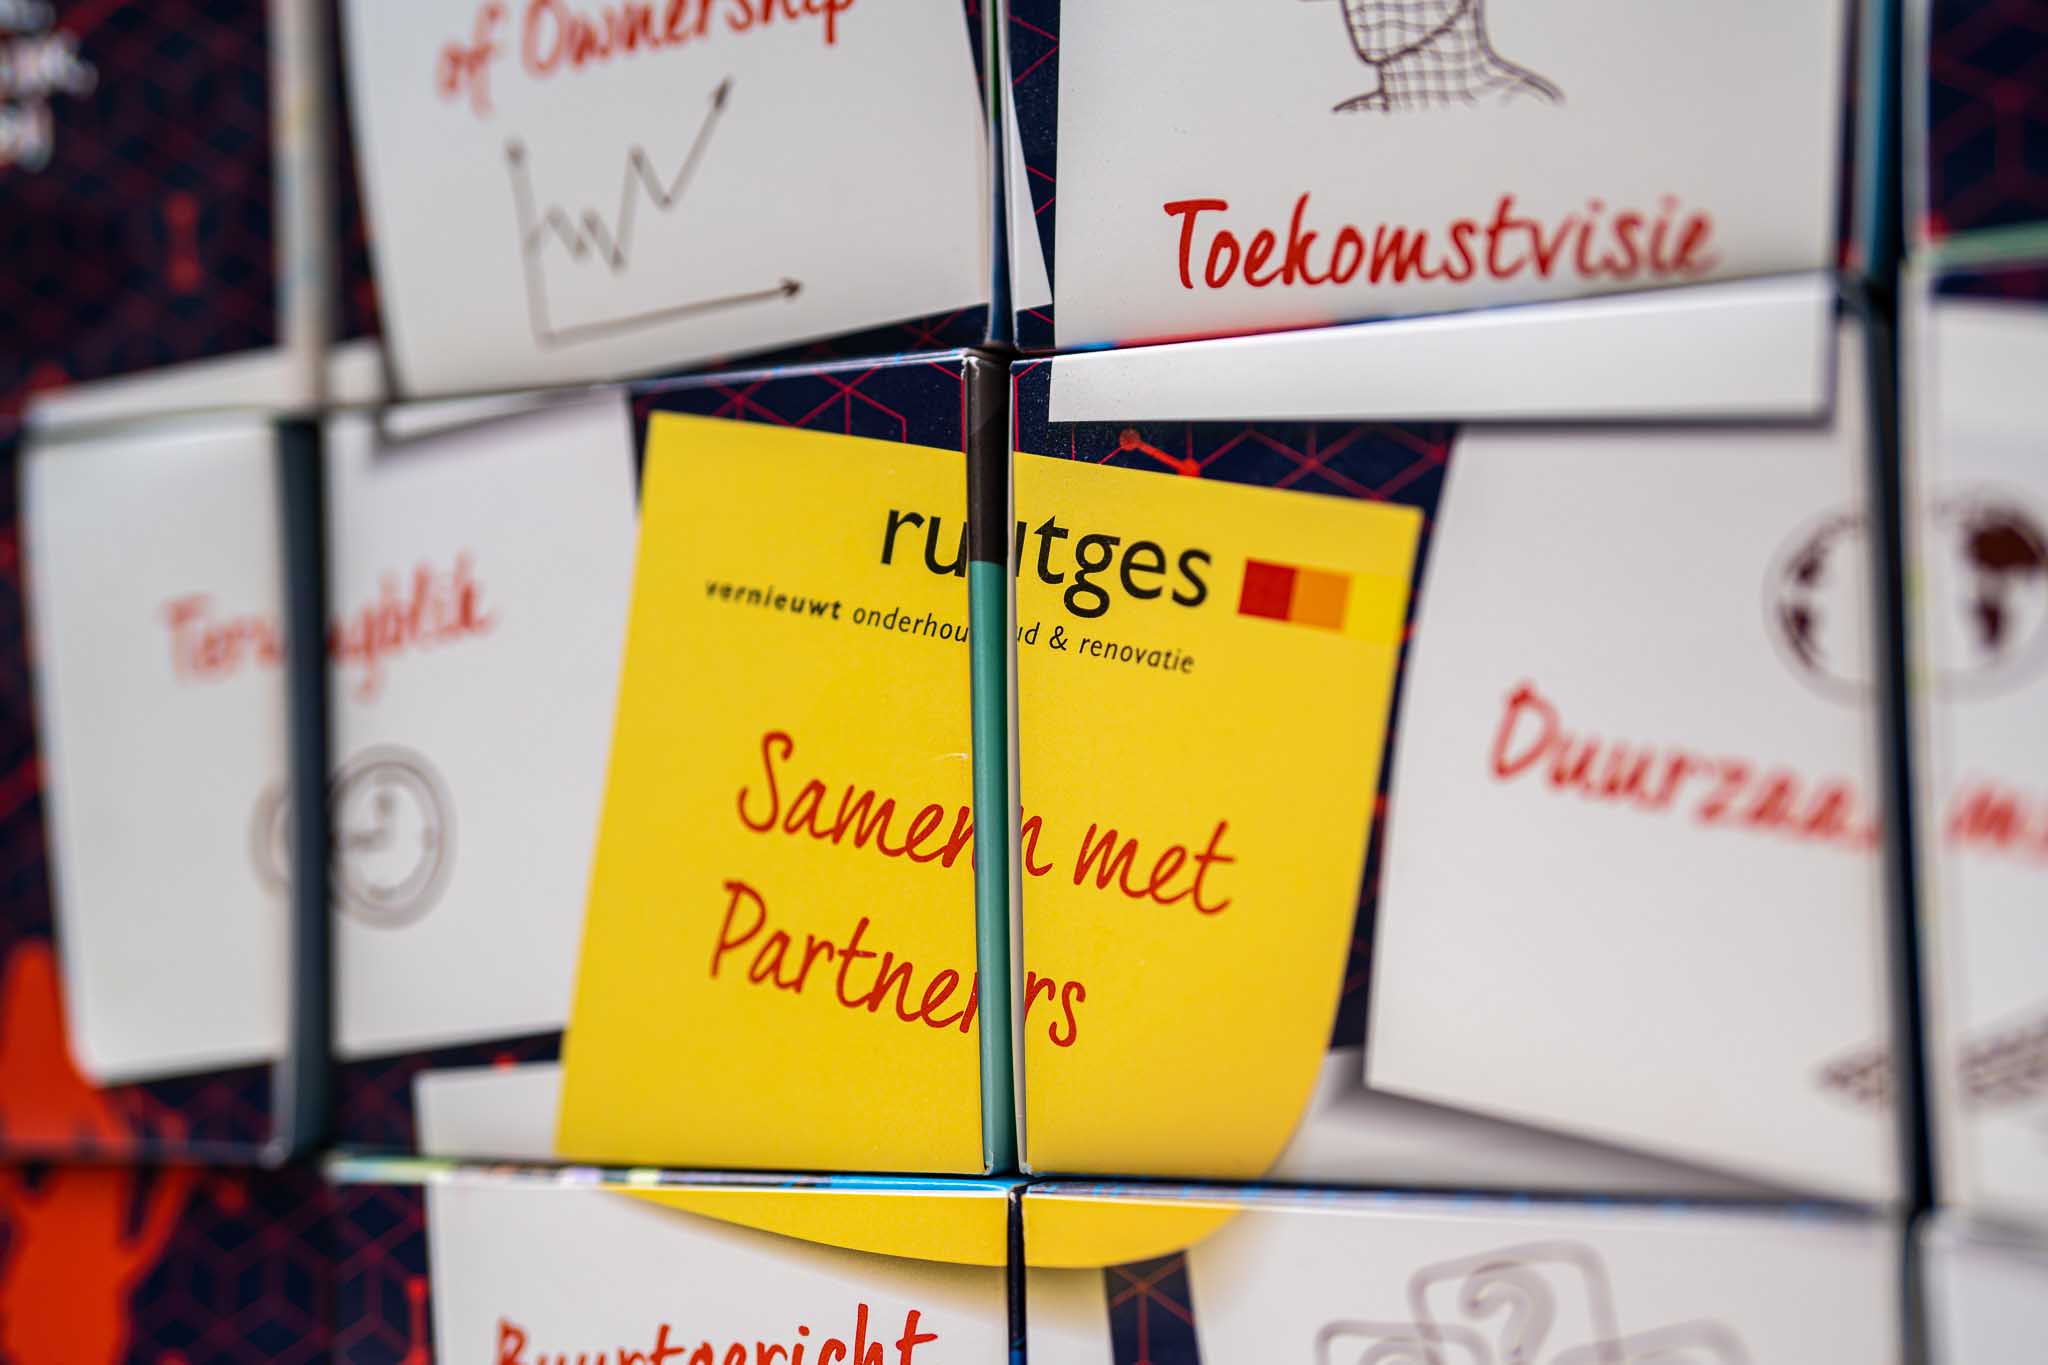 of Ownership
Toekomstvisie
rutges
vernieuwt onderhoud & renovatie
Samen met
Partners
Buurtgericht